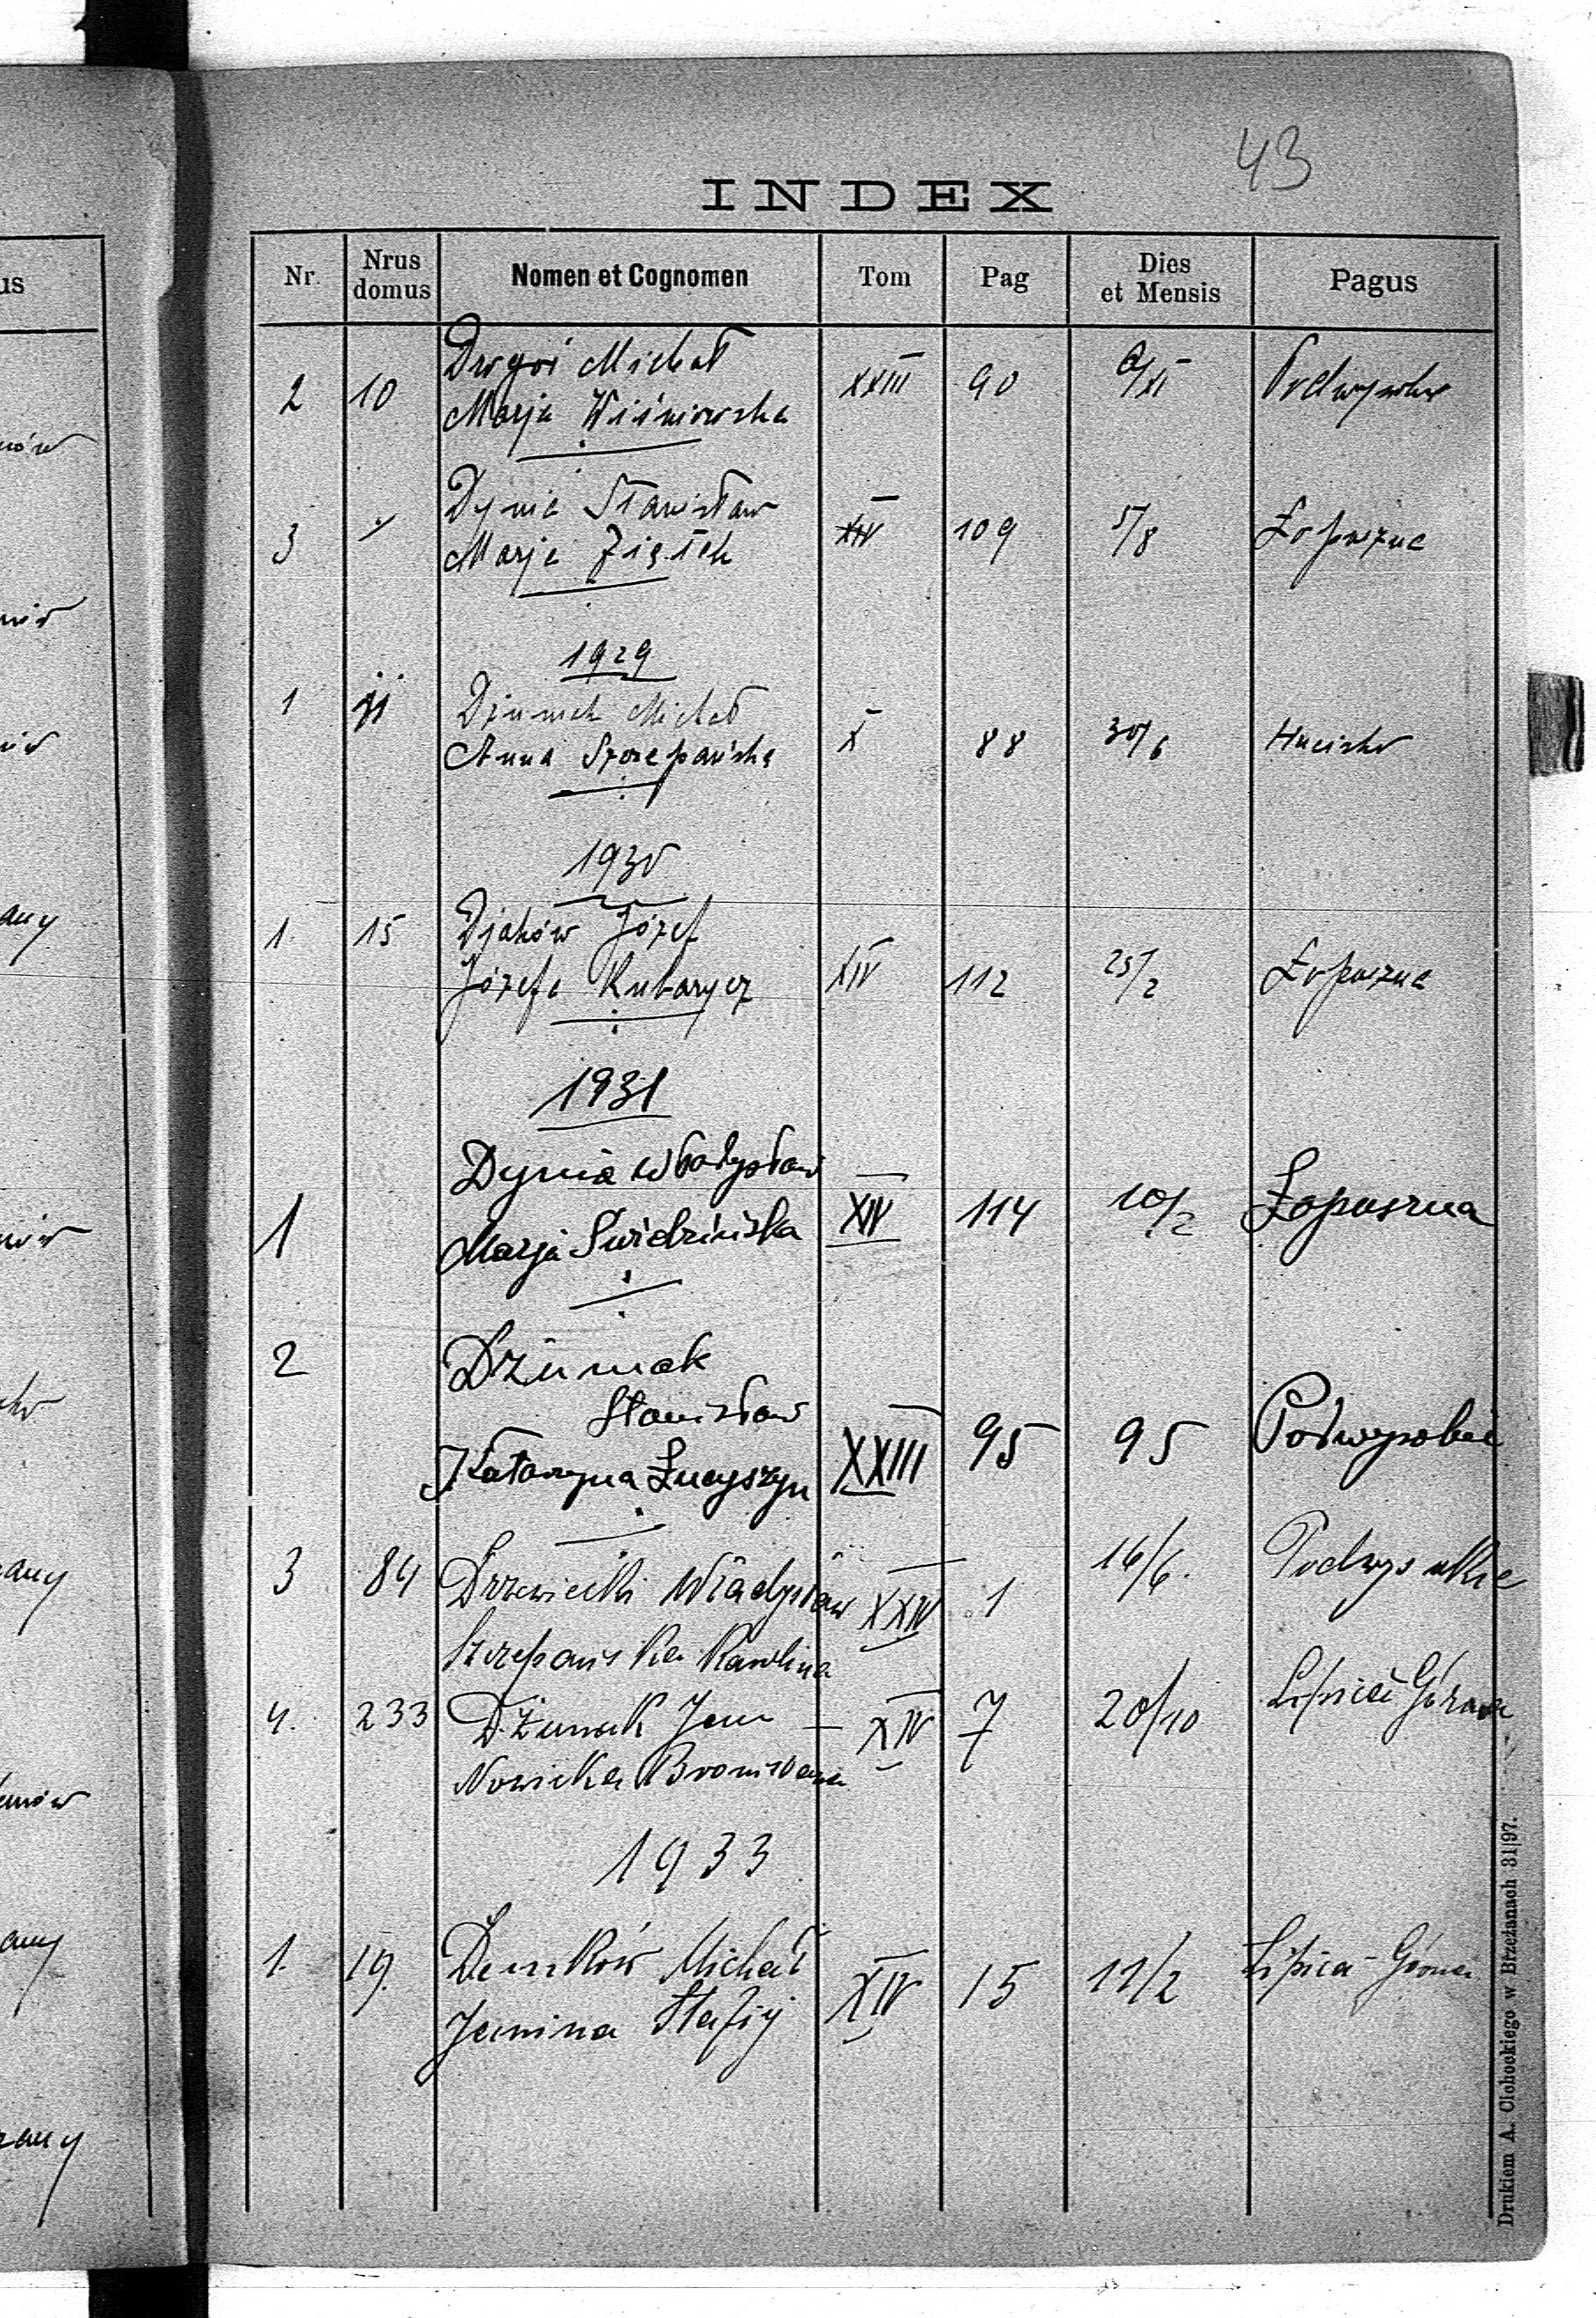 43
INDEX
Nr. Nrus domus Nomen et Cognomen Tom Pag Dies et Mensis Pagus
2 10 Michał XXIII 90
Marja Wiśniowska
3 Dynia Stanisław XIV 109 5/8 Łopuszna
Marja Ziątek
1929
1 Dziumak Michał X 88 30/6 Hucisko
Anna Szczepańska
1930
1 15 Djaków Józef XIV 112 25/2 Łopuszna
Józefa
1931
Dynia Władysław
1 Marja Świdzińska XIV 114 10/2 Łopuszna
2 Dziumak
Stanisław
Katarzyna Łucyszyn XXIII 95 95 Podwysokie
3 84 Drzewiecki Władysław XXIV 1 16/6. Podwysokie
Szczepańska Karolina
4. 233 Dziumak Jan – XIV 7 20/10 Lipica Górna
Nowicka Bronisława
1933
1. 19. Demków Michał XIV 15 11/2 Lipica-Górna
Janina
Drukiem A. Cichockiego w Brzeżanach 31|97.
us
ków
any
any
any